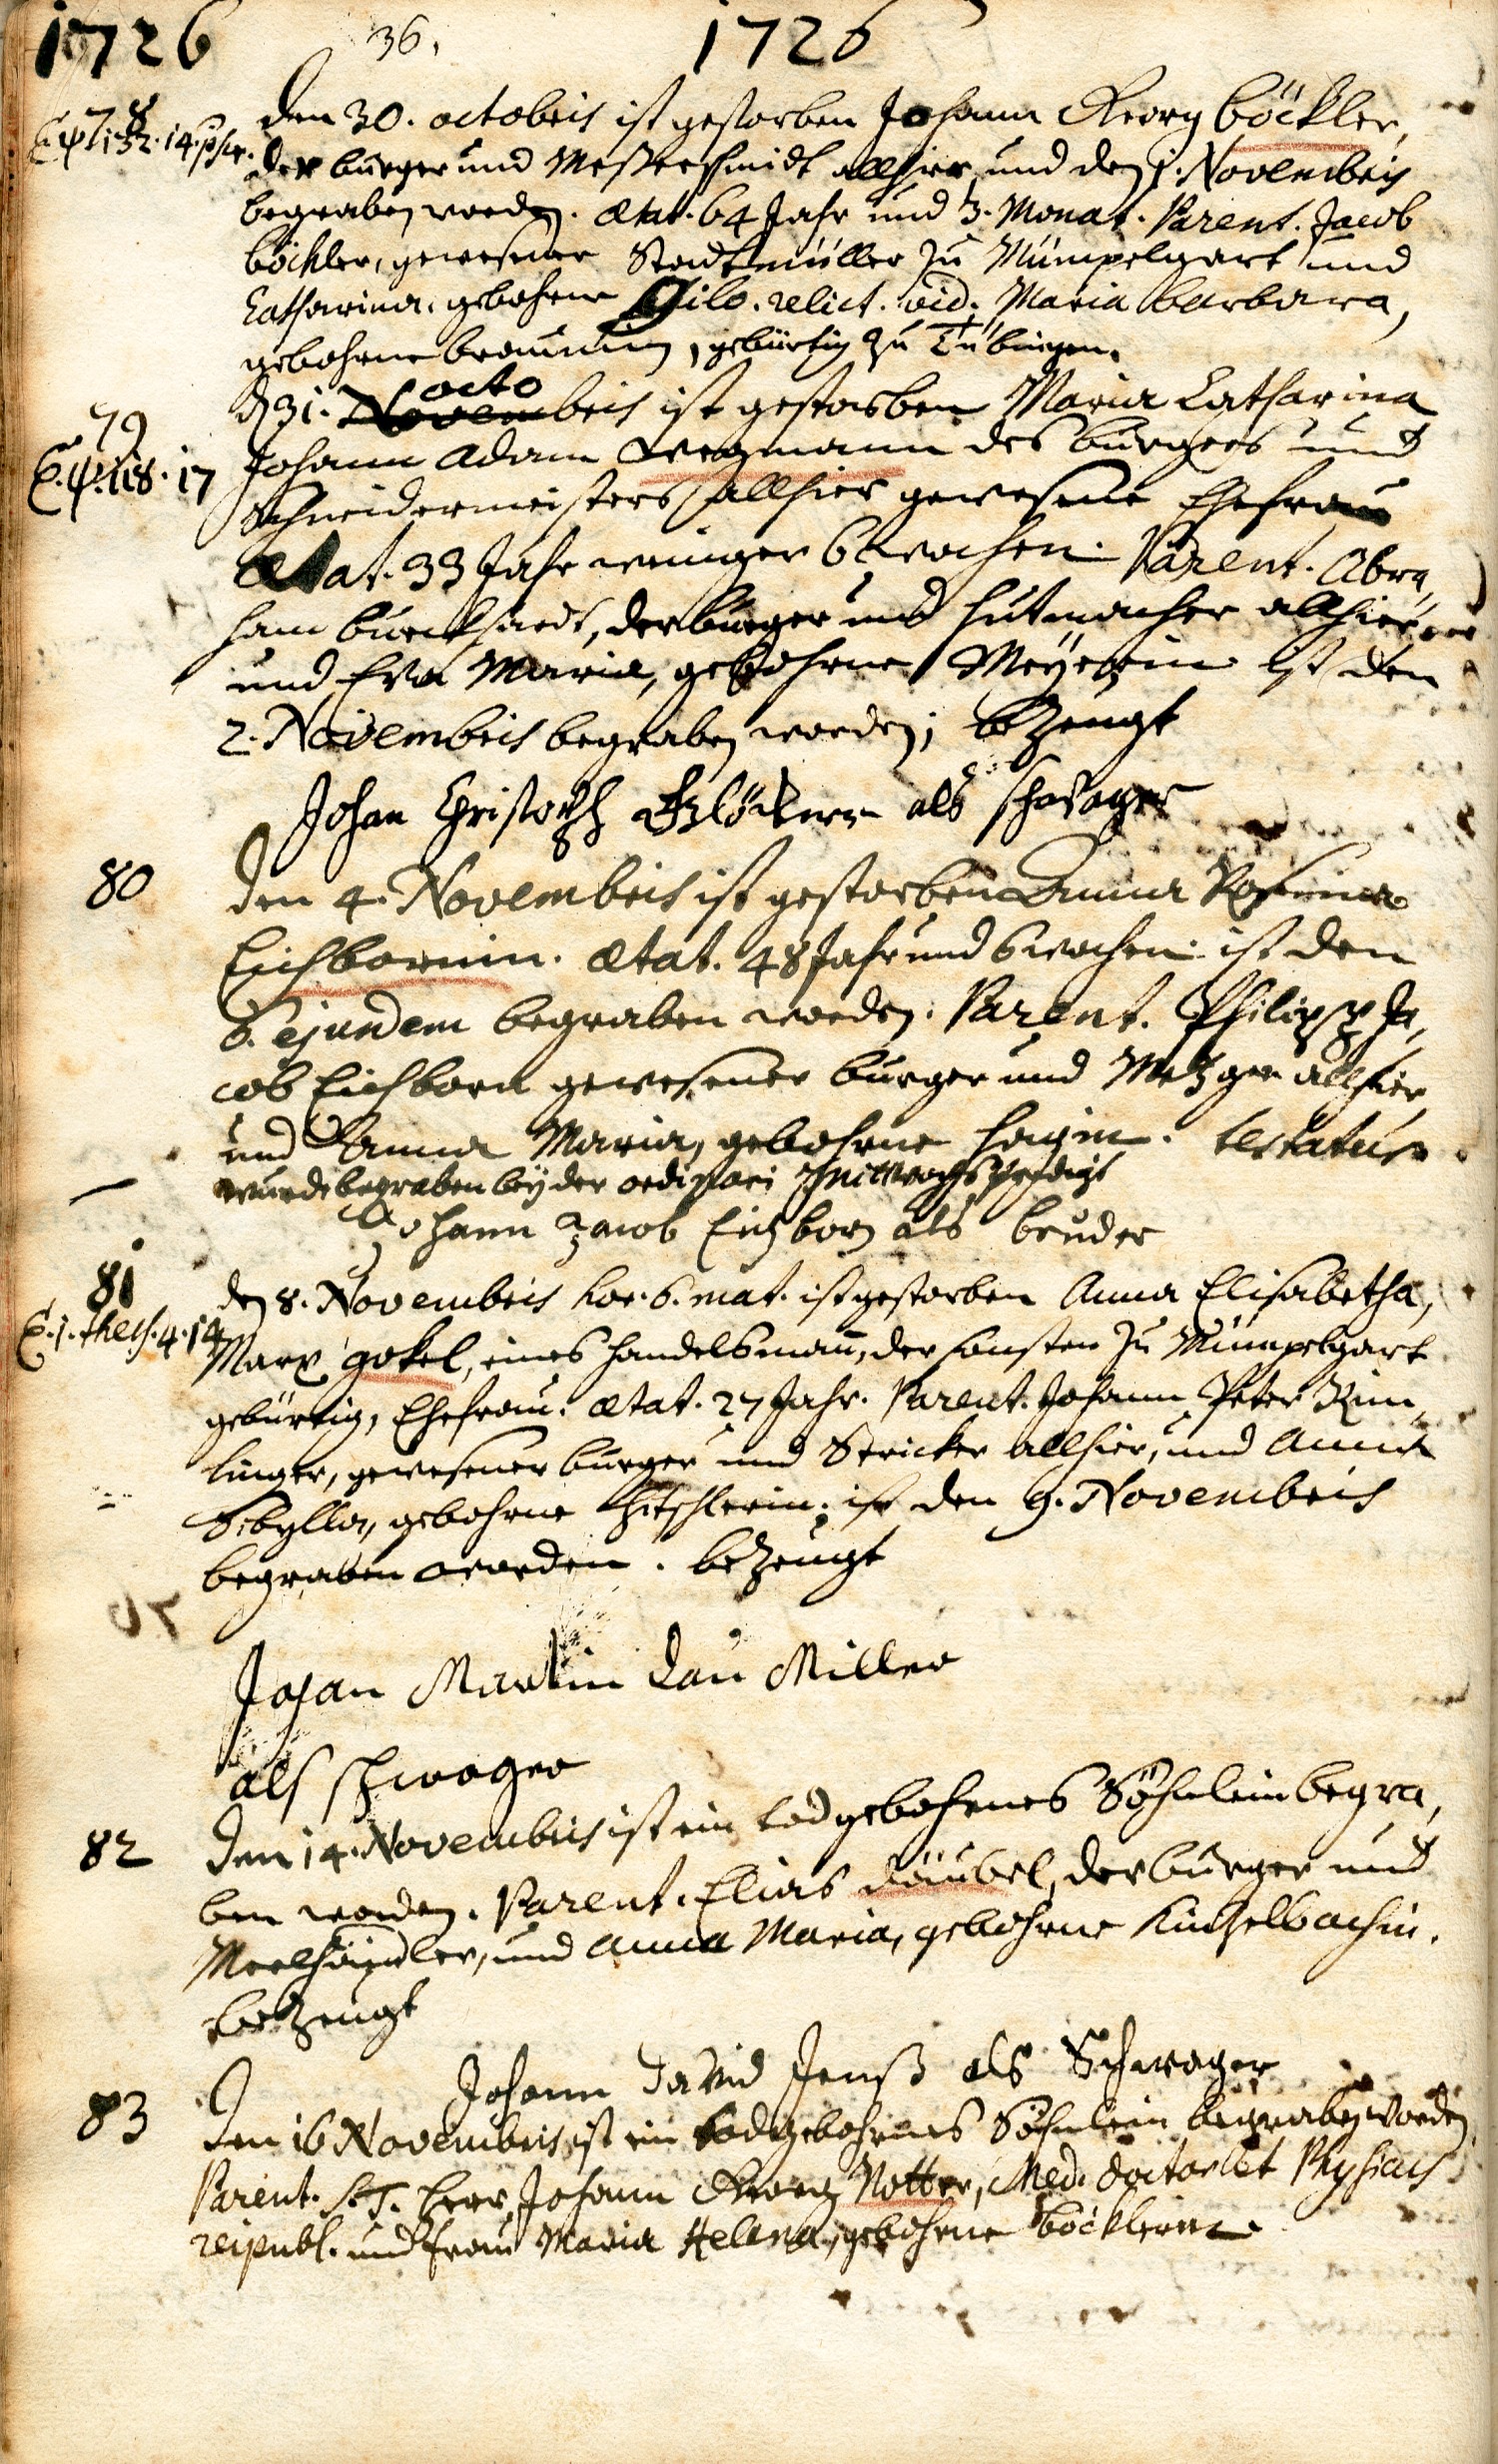 1726 36. 1726
78
den 30. octobris ist gestorben Johann Georg böckler,
der burger und Messerschmidt allhier, und den 1. Novembris
begraben worden. Ætat. 64 Jahr und 3. Monat. Parent. Jacob
böckler, gewesener Stadtmüller zu Mümpelgart und
Catharina, gebohrne Gilo. relict. vid. Maria barbara,
gebohrne braunin, gebürtig zu Tübingen.
79
E. ψ. 118. 17
d 31. Novem octobris ist gestorben Maria Catharina
Johann Adam Wegmann des burgers und
Schneidermeisters allhier gewesene Ehefrau
Ætat. 33 Jahr weniger 6 wochen. Parent. Abra,
ham burckhardt, der burger und hutmacher allhier
und Eva Maria, gebohrne Meyerin ist den
2. Novembris begraben worden; bezeugt
Johan Christoph als schwager
80
den 4. Novembris ist gestorben Anna Rosina
Eichbornin. Ætat. 48 Jahr und 6 wochen. ist den
6. ejusdem begraben worden. Parent. Philipp Ja,
cob Eichborn gewesener burger und Metzger allhier
und Anna Maria, gebohrne hagin. testatur.
wurde begraben bey der ordinari Mittwochs Predigt
Johann Jacob Eichborn als bruder
81
E. 1. Thess. 4. 14
den 8. Novembris hor. 6. mat. ist gestorben Anna Elisabetha,
Marx gokel, eines handelsmañ, der sonsten zu Mümpelgart
gebürtig, Ehefrau. Ætat. 27 Jahr. Parent. Johann Peter Rim,
linger, gewesener burger und Stricker allhier, und Anna
Sibylla, gebohrne hitschlerin; ist den 9. Novembris
begraben worden. bezeugt
Johan Martin Lau Miller
als schwager
82
den 14. Novembris ist ein todgebohrnes Söhnlein begra,
ben worden. Parent. Elias däubel, der burger und
Meelhändler, und Anna Maria, gebohrne Kintzelbachin.
bezeugt
Johann David Jenß als Schwager
83
den 16 Novembris ist ein todgebohrnes Söhnlein begraben worden
Parent. S. T. herr Johann Georg Notter, Med. doctor et Physicus
reipubl. und frau Maria Helena, gebohrne böcklerin